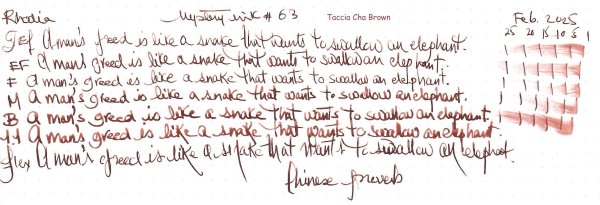 Rhodia Mystery ink # 63 Taccia Cha Brown Feb. 2025
25 20 15 10 5 1
EF A man's greed is like a snake that wants to swallow an elephant.
EF A man's greed is like a snake that wants to swallow an elephant.
F A man's greed is like a snake that wants to swallow an elephant.
M A man's greed is like a snake that wants to swallow an elephant.
B A man's greed is like a snake that wants to swallow an elephant.
1.1 A man's greed is like a snake that wants to swallow an elephant.
flex A man's greed is like a snake that wants to swallow an elephant.
Chinese proverb